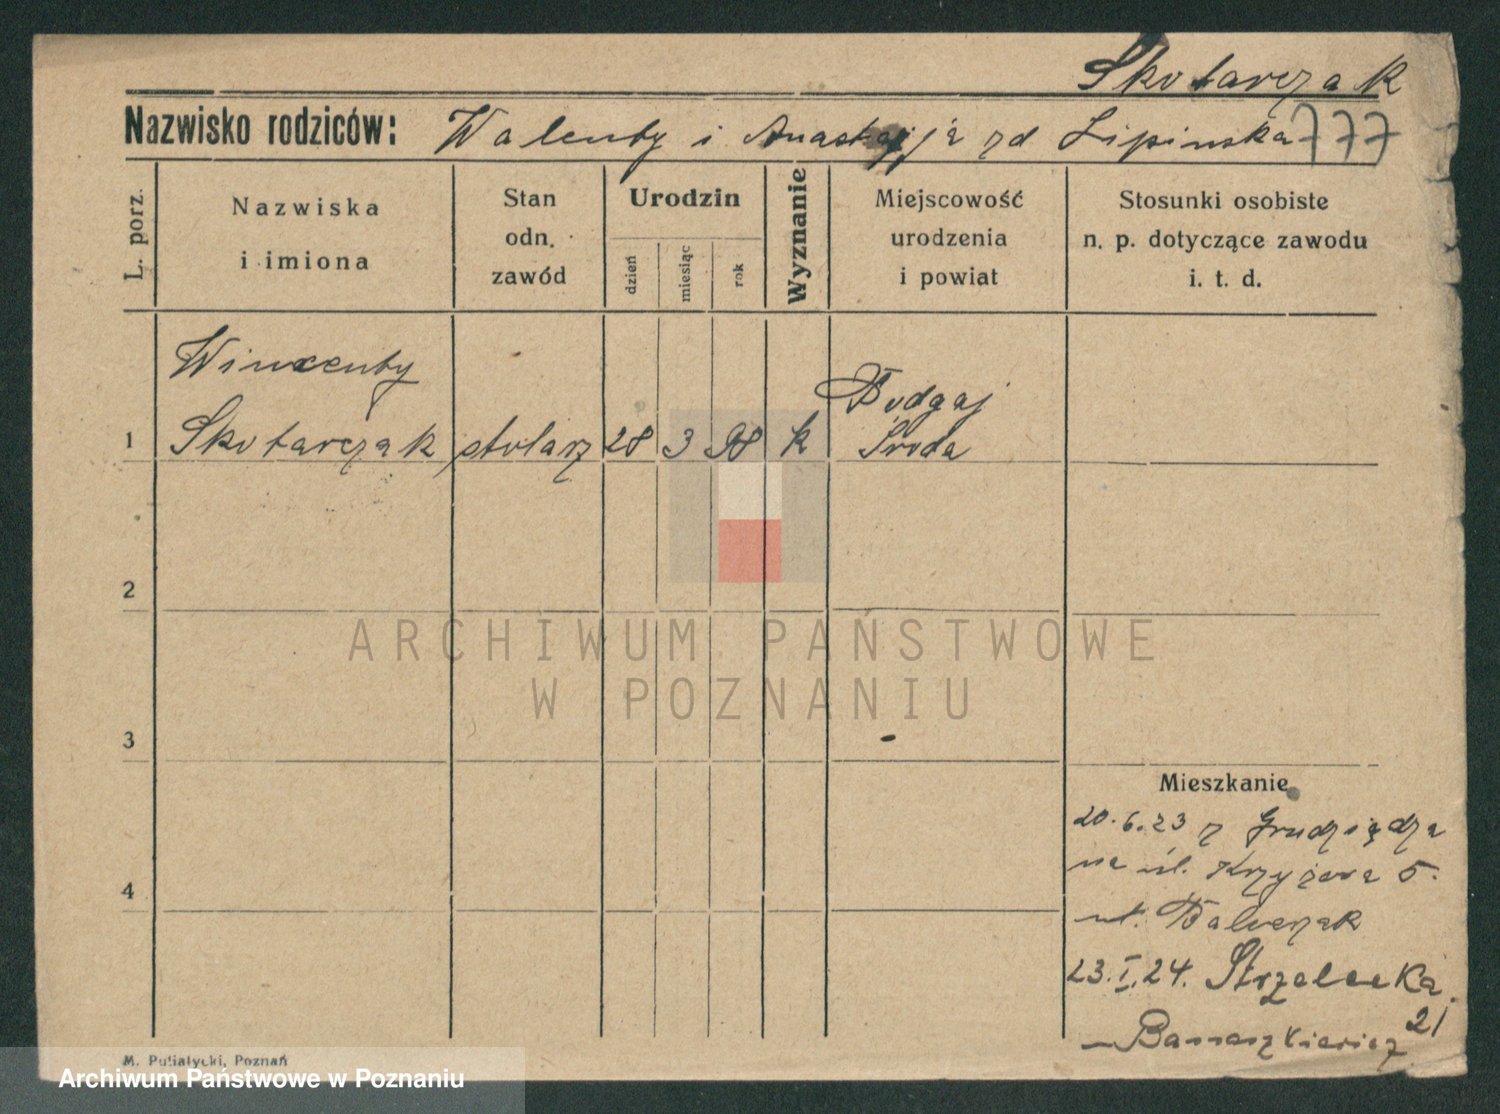 Skotarczak
Nazwisko rodziców: Walenty i Anastazja zd Lipinska 777
L. porz.
Nazwiska
i imiona
Stan
odn.
zawód
Urodzin
dzień
miesiąc
rok
Wyznanie
Miejscowość
urodzenia
i powiat
Stosunki osobiste
n. p. dotyczące zawodu
i. t. d.
Wincenty
Podgaj
1 Skotarczak stolarz 28 3 98 k Środa
2
ARCHIWUM PAŃSTWOWE
W POZNANIU
3
Mieszkanie
20.6.23 z Grudziądza
na ul. Krzyżowa 5.
4
23.I.24. Strzelecka
21
M. Putiatycki, Poznań
Archiwum Państwowe w Poznaniu